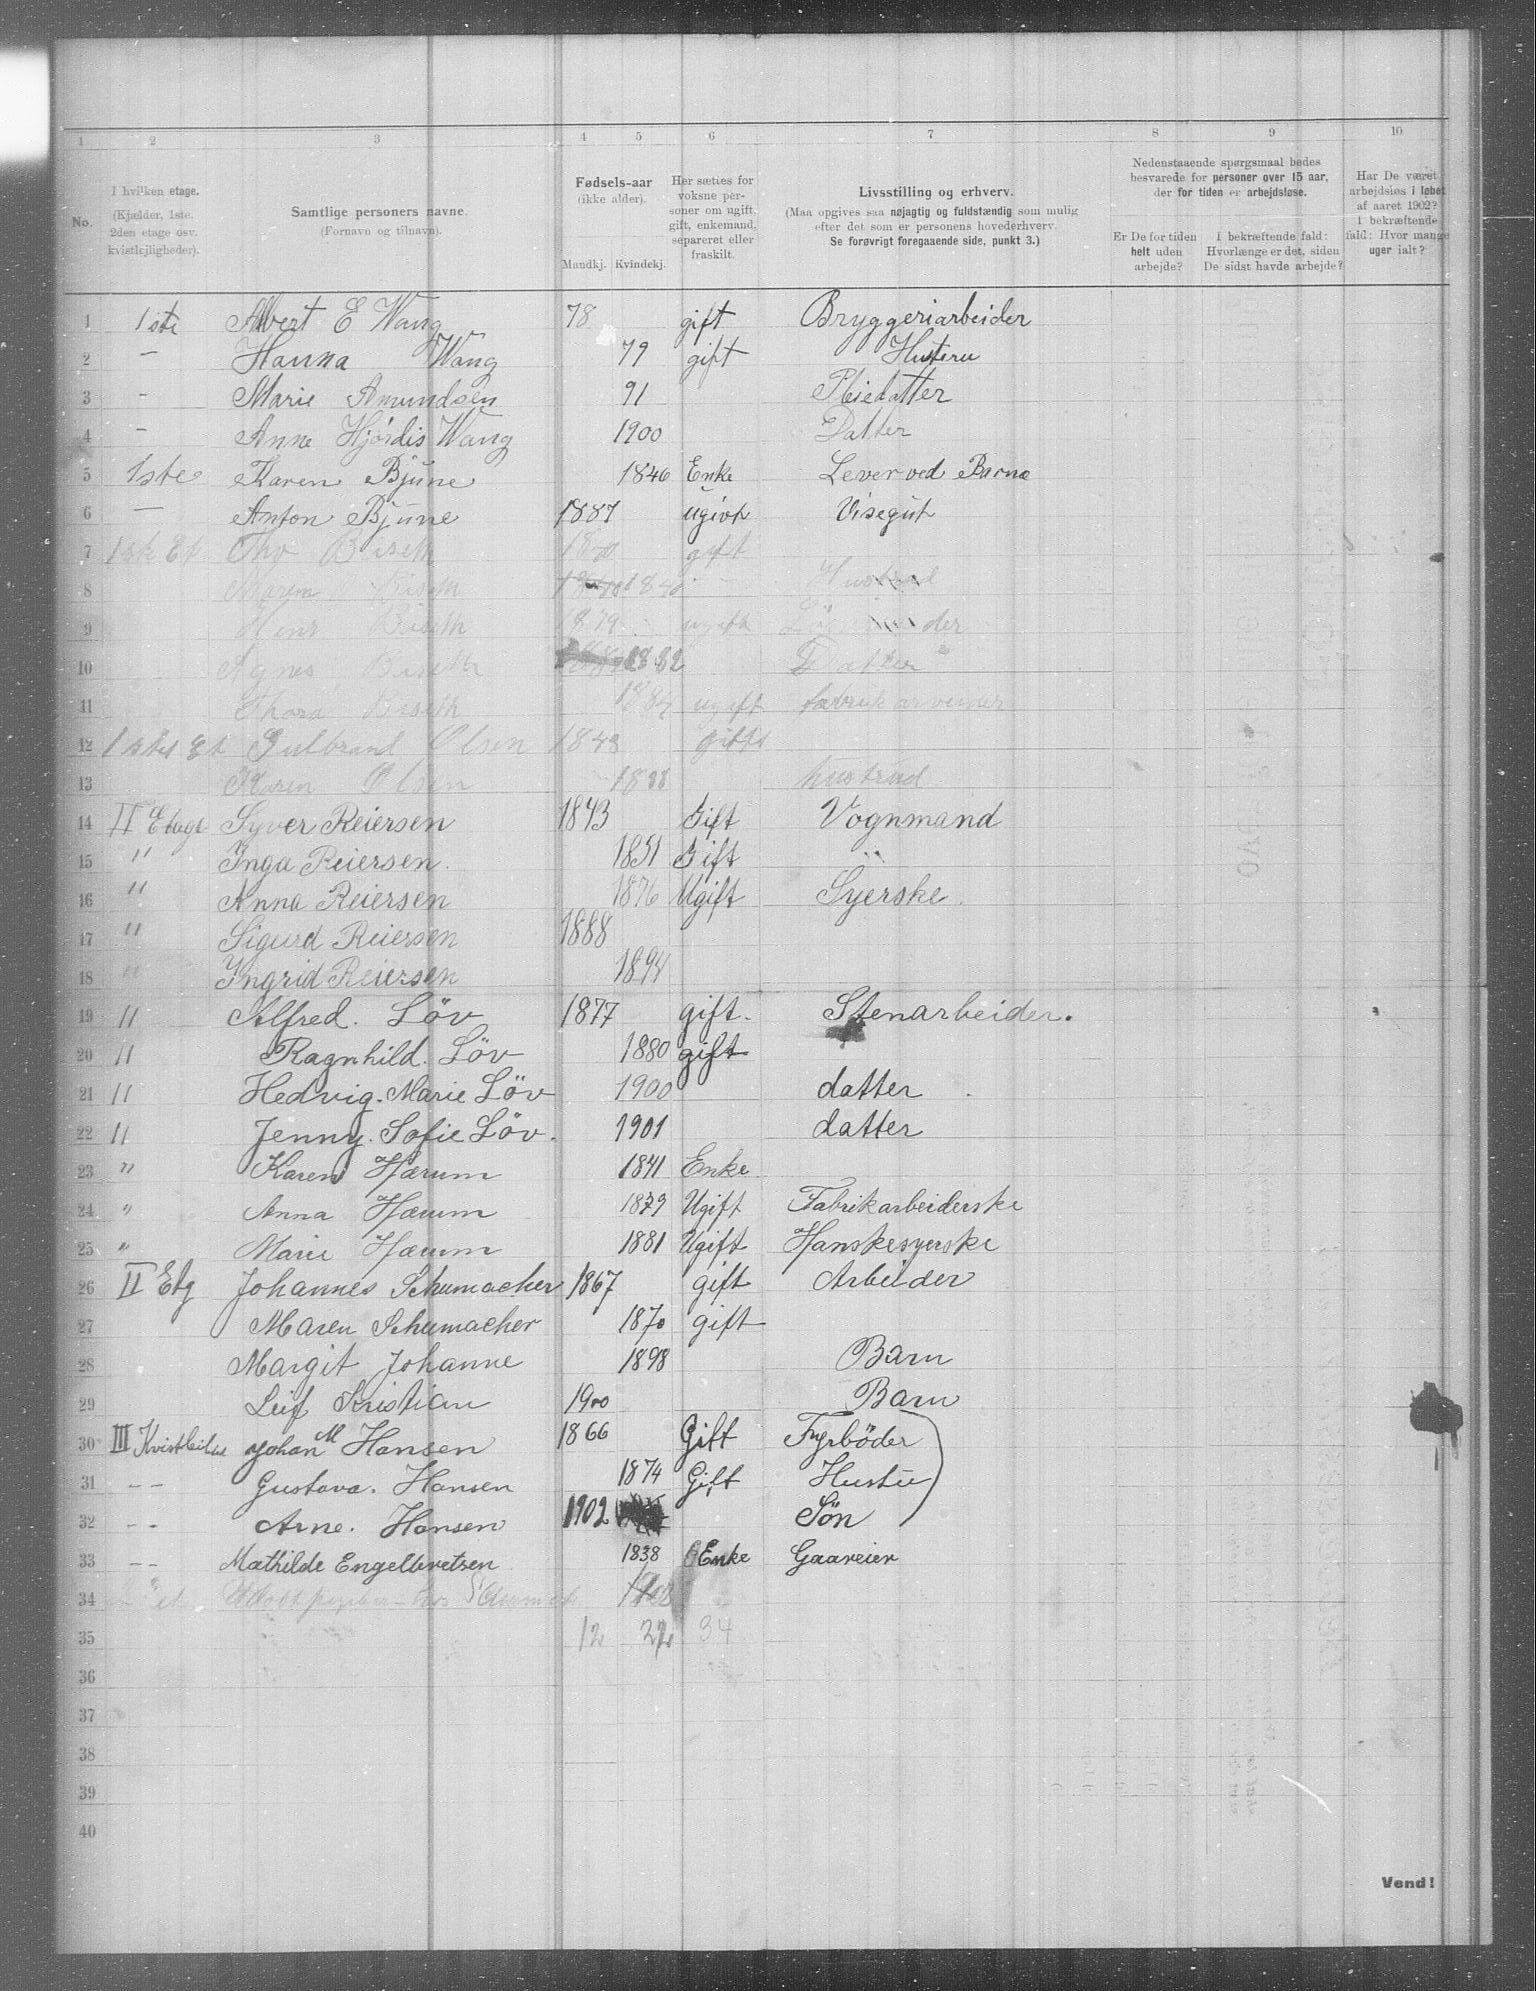 1 2 3 4 5 6 7 8 9 10
No.
I hvilken etage.
(Kjælder, 1ste.
2den etage osv.
kvistlejligheder).
Samtlige personers navne.
(Fornavn og tilnavn).
Fødsels-aar
(ikke alder).
Mandkj. Kvindekj.
Her sættes for
voksne per-
soner om ugift,
gift, enkemand,
separeret eller
fraskilt.
Livsstilling og erhverv.
(Maa opgives saa nøjagtig og fuldstændig som mulig
efter det som er personens hovederhverv.
Se forøvrigt foregaaende side, punkt 3.)
Nedenstaaende spørgsmaal bedes
besvarede for personer over 15 aar,
der for tiden er arbejdsløse.
Er De for tiden
helt uden
arbejde?
I bekræftende fald:
Hvorlænge er det, siden
De sidst havde arbejde?
Har De været
arbejdsløs i løbet
af aaret 1902?
I bekræftende
fald: Hvor mange
uger ialt?
1 1ste Albert E Wang 78 gift Bryggeriarbeider
2 – Hanna Wang 79 gift Husteru
3 - Marie Amundsen 91 Pleiedatter
4 - Anne Hjørdis Wang 1900 Datter
5 1ste Karen Bjune 1846 Enke Lever ved Barna
6 – Anton Bjune 1887 ugivt Visegut
7 1ste Et Biseth gift
8 Maren Biseth 1840
9 Biseth 1879 ugift
10 Agnes Biseth 1882 Datter
11 Thora Biseth 1884 ugift
12 Gulbrand Olsen 1843 gift
13 Karen Olsen hustrud
14 II Etage Syver Reiersen 1843 Gift Vognmand
15 " Inga Reiersen. 1851 Gift
16 " Anna Reiersen 1876 Ugift Syerske
17 " Sigurd Reiersen 1888
18 " Yngrid Reiersen 1894
19 " Alfred. Löv 1877 gift. Stenarbeider.
20 " Ragnhild. Löv 1880 gift
21 " Hedvig. Marie Löv 1900 datter
22 " Jenny. Sofie Löv. 1901 datter
23 " Karen Hærum 1841 Enke
24 " Anna Hærum 1879 Ugift Fabrikarbeiderske
25 " Marie Hærum 1881 Ugift Hanskesyerske
26 II Etg Johannes Schumacher 1867 gift Arbeider
27 Maren Schumacher 1870 gift
28 Margit Johanne 1898 Barn
29 Leif Kristian 1900 Barn
30 III Johan M Hansen 1866 Gift Fyrböder
31 – – Gustava. Hansen 1874 Gift Hustru
32 – - Arne. Hansen 1902 Sön
33 – – Mathilde Engelbretsen 1838 Enke Gaareier
34
35 12 22 34
36
37
38
39
40
Vend!